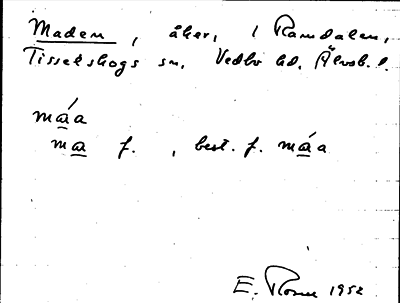 Maden, åker, i Ramdalen,
Tisselskogs sn, Vedbo hd, Älvsb. l.
má̱a
ma̱ f., best. f. má̱a
E. Rosen 1952